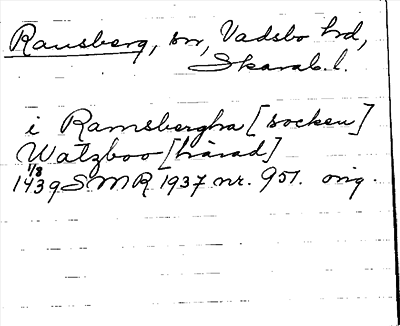 Ransberg, sn, Vadsbo hd,
Skarab. l.
i Ramsbergha [socken]
Watzboo [härad]
1/8
1439 SMR 1937 nr. 951. orig.